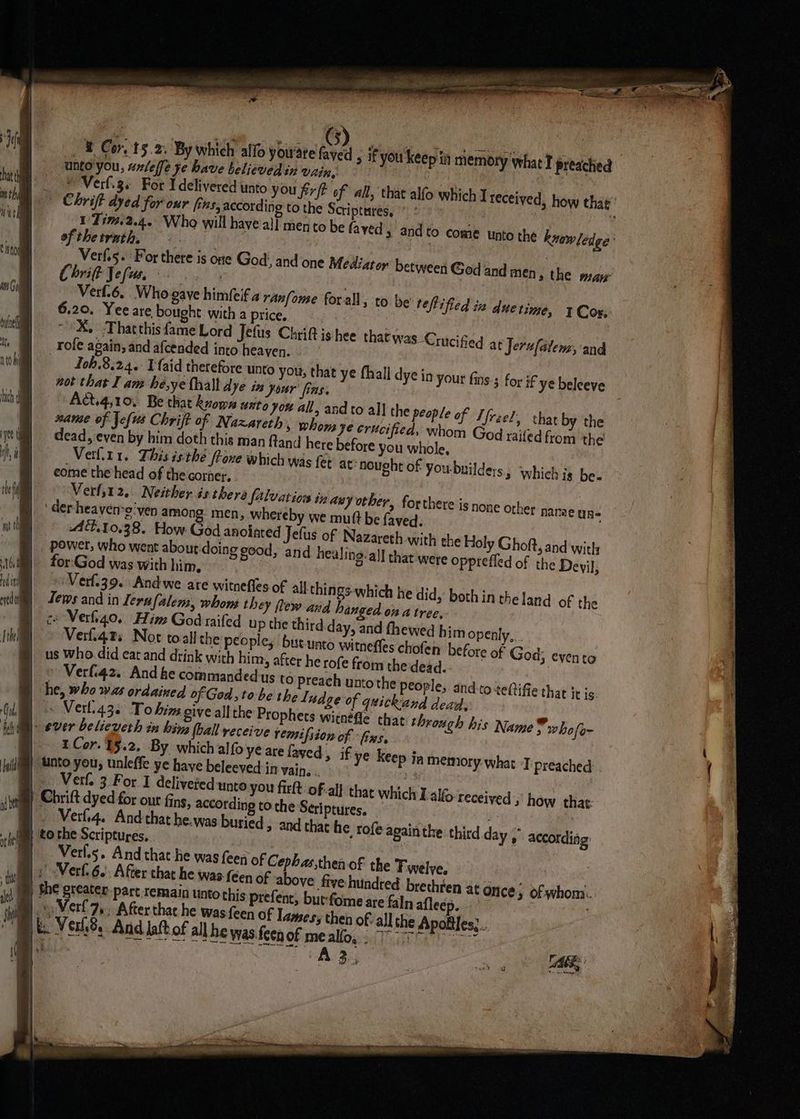 (5)
1 Cor. 15.2. By which also you are saved, if you keep in memory what I preached
unto you, unlesse ye have believed in vain.
Vers.3. For I delivered unto you first of all, that also which I received, how that
Christ dyed for our sins, according to the Scriptures.
1 Tim.2.4. Who will have all men to be saved, and to come unto the knowledge
of the truth.
Vers.5. For there is one God, and one Mediator between God and men, the man
Christ Jesus.
Vers.6. Who gave himself a ransome for all, to be testified in due time, 1 Cor.
6.20. Yee are bought with a price.
X. That this same Lord Jesus Christ is hee that was Crucified at Jerusalem, and
rose again, and ascended into heaven.
Joh.8.24. I said therefore unto you, that ye shall dye in your sins; for if ye beleeve
not that I am he, ye shall dye in your sins.
Act.4.10. Be that known unto you all, and to all the people of Israel, that by the
name of Jesus Christ of Nazareth, whom ye crucified, whom God raised from the
dead, even by him doth this man stand here before you whole.
Vers.11. This is the stone which was set at nought of you builders, which is be-
come the head of the corner.
Vers.12. Neither is there salvation in any other, for there is none other name un-
der heaven given among men, whereby we must be saved.
Act.10.38. How God anointed Jesus of Nazareth with the Holy Ghost, and with
power, who went about doing good, and healing all that were oppressed of the Devil,
for God was with him.
Vers.39. And we are witnesses of all things which he did, both in the land of the
Jews and in Jerusalem, whom they slew and hanged on a tree.
Vers.40. Him God raised up the third day, and shewed him openly.
Vers.41. Not to all the people, but unto witnesses chosen before of God, even to
us who did eat and drink with him, after he rose from the dead.
Vers.42. And he commanded us to preach unto the people, and to testifie that it is
he, who was ordained of God, to be the Judge of quick and dead.
Vers.43. To him give all the Prophets witnesse that through his Name whoso-
ever believeth in him shall receive remission of sins.
1 Cor. 15.2. By which also ye are saved, if ye keep in memory what I preached
unto you, unlesse ye have beleeved in vain.
Vers. 3. For I delivered unto you first of all that which I also received, how that
Christ dyed for our sins, according to the Scriptures.
Vers.4. And that he was buried, and that he rose again the third day, according
to the Scriptures.
Vers.5. And that he was seen of Cephas, then of the Twelve.
Vers.6. After that he was seen of above five hundred brethren at once, of whom
the greater part remain unto this present, but some are faln asleep.
Vers 7. After that he was seen of James, then of all the Apostles;
Vers.8. And last of all he was seen of me also.
A 3.